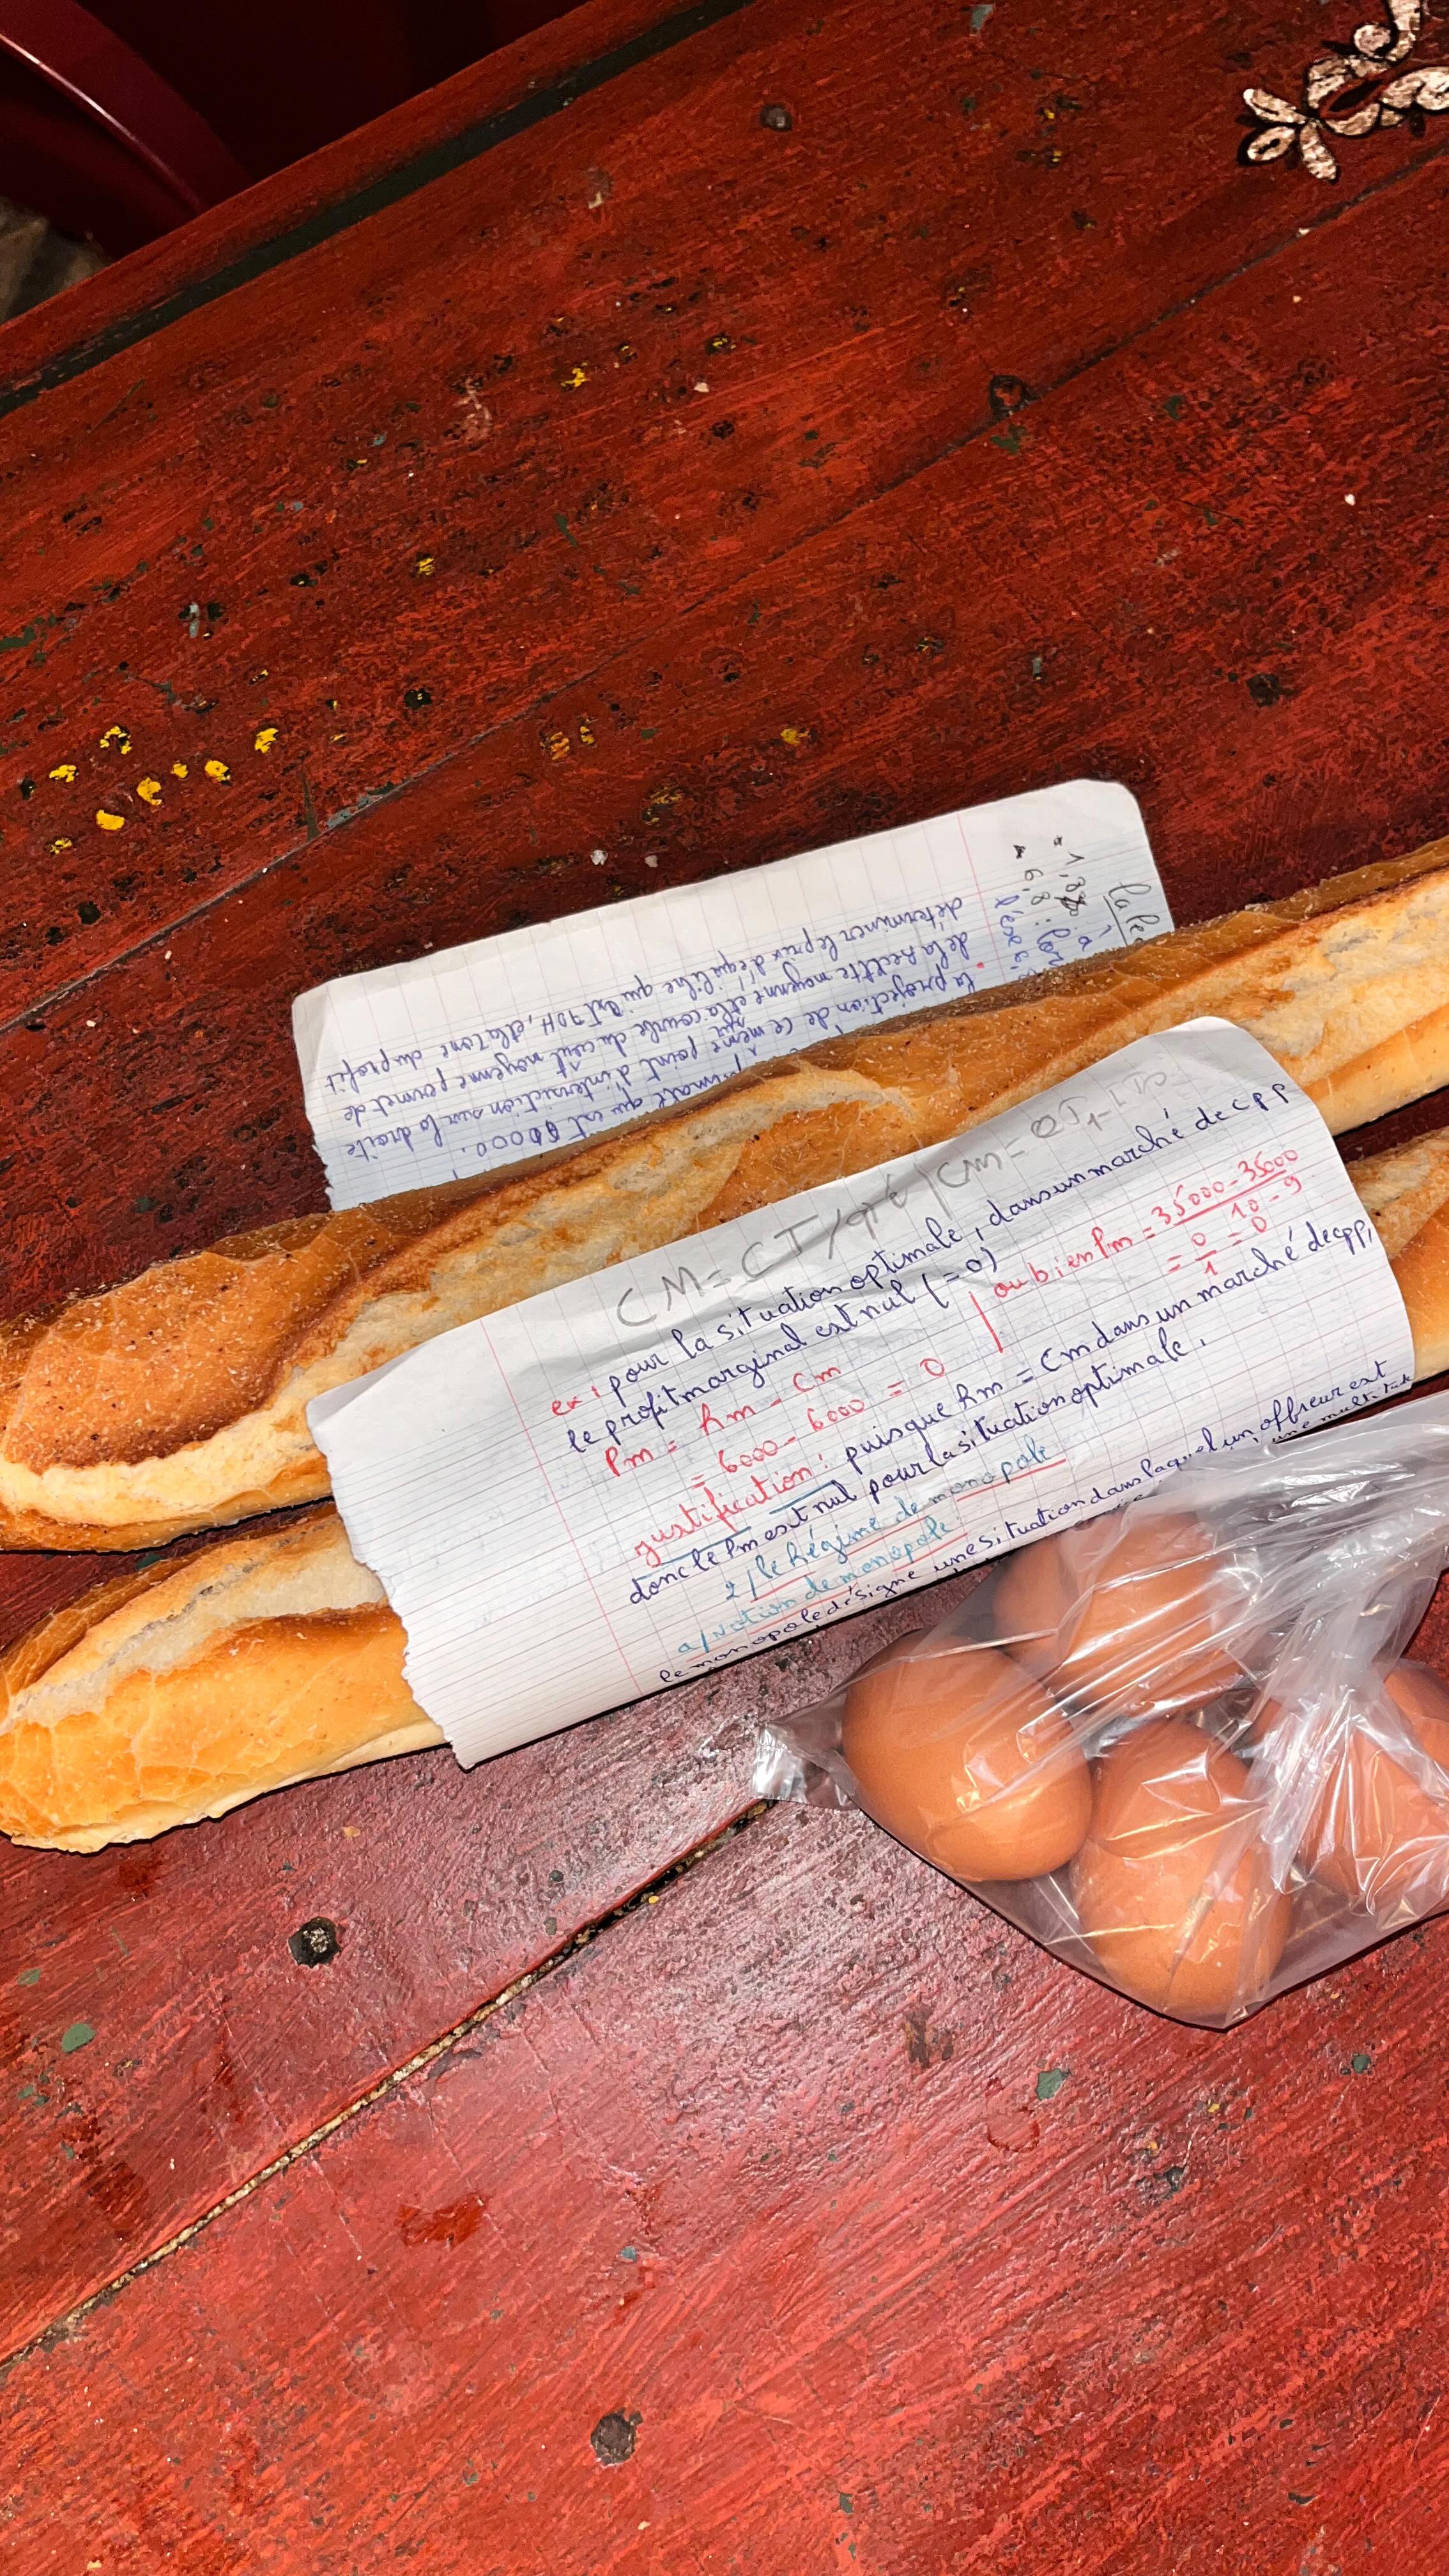 CM = CT/qté | Cm =
ex: pour la situation optimale, dans un marché de cpp
le profit marginal est nul (=0)
Pm = Rm - Cm
= 6000 - 6000 = 0
ou bien Pm = 35000-35000
10-9
= 0/1 = 0
justification: puisque Rm = Cm dans un marché de cpp,
donc le Pm est nul pour la situation optimale.
2/ le Régime de monopole
a/ Notion de monopole:
le monopole désigne une situation dans laquel un offreur est
une multitude
qui est 60000.
la projection de ce même point d'intersiction sur la droite
de la Recette moyenne et la courbe du coût moyenne permet de
déterminer le prix d'équilibre qui est 7DH, et la zone du profit